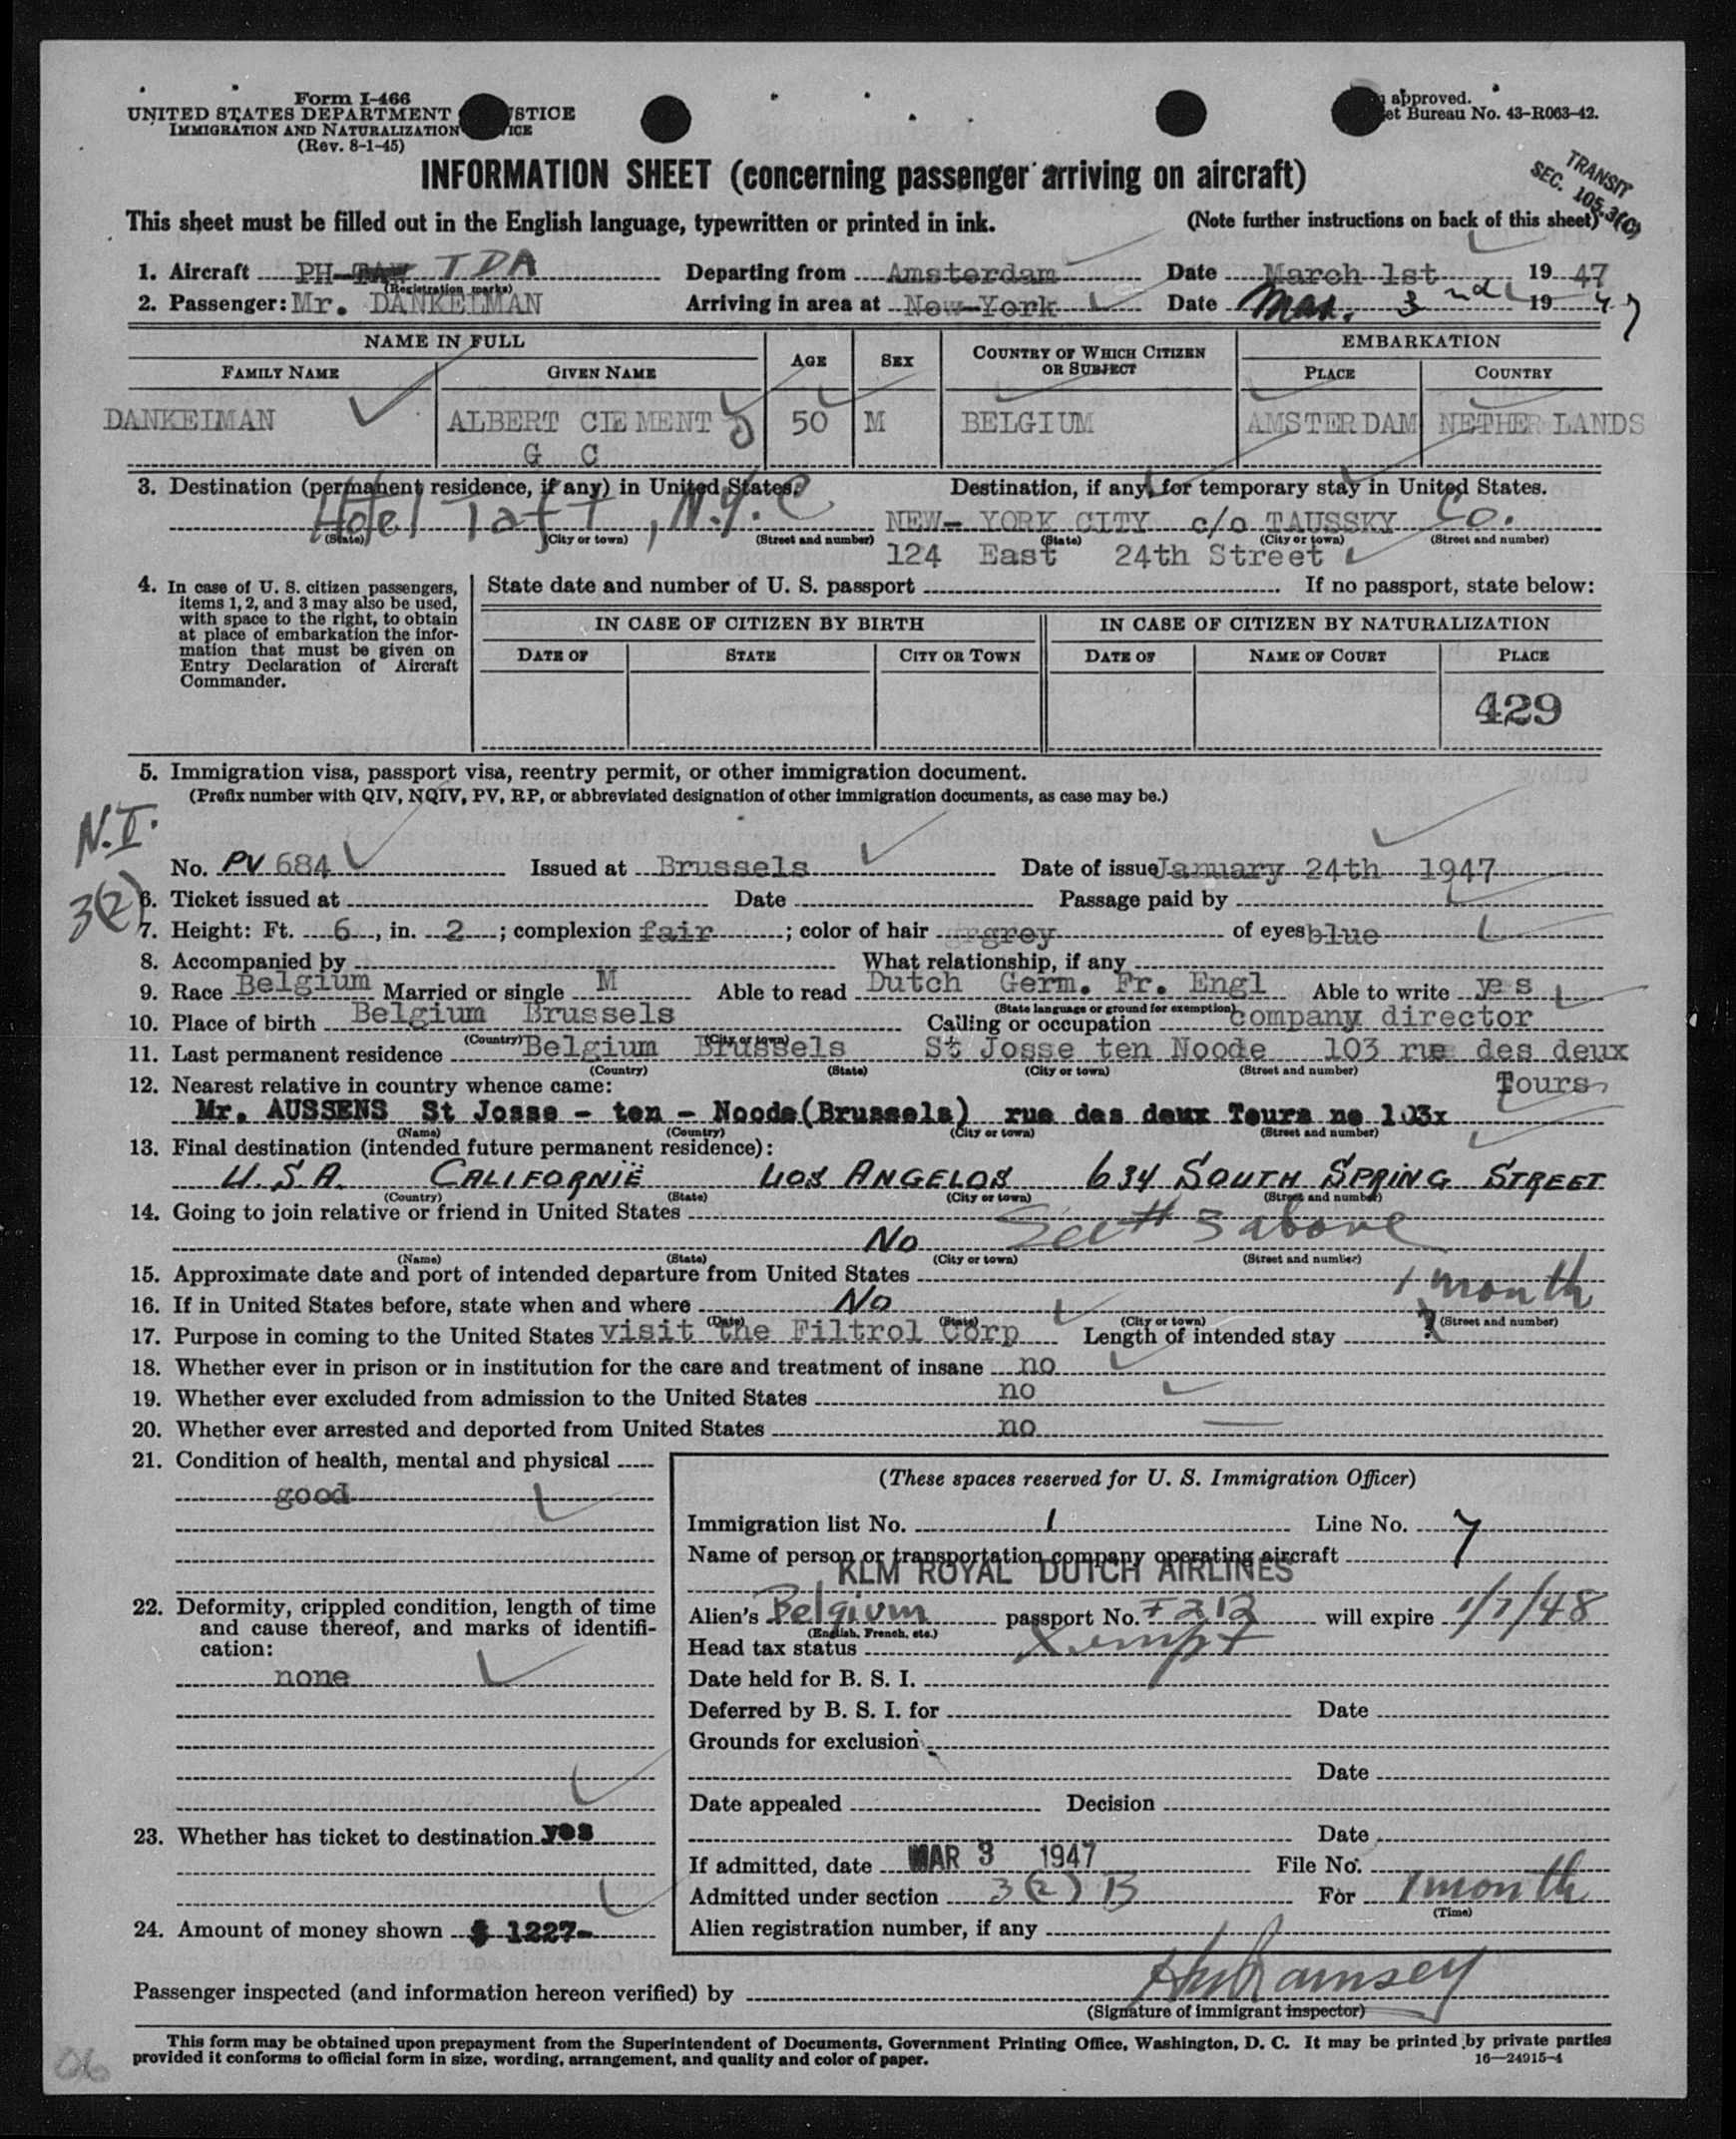 Form I-466
UNITED STATES DEPARTMENT STICE
IMMIGRATION AND NATURALIZATION ICE
(Rev. 8-1-45)
approved.
et Bureau No. 43-R063-42.
INFORMATION SHEET (concerning passenger arriving on aircraft)
TRANSIT
SEC. 105.3(C)
This sheet must be filled out in the English language, typewritten or printed in ink. (Note further instructions on back of this sheet)
1. Aircraft PH- TDA Departing from Amsterdam Date March 1st 1947
(Registration marks)
2. Passenger: Mr. DANKELMAN Arriving in area at New-York Date Mar. 3 nd 1947
NAME IN FULL AGE SEX COUNTRY OF WHICH CITIZEN OR SUBJECT EMBARKATION
FAMILY NAME GIVEN NAME PLACE COUNTRY
DANKELMAN ALBERT CLEMENT 50 M BELGIUM AMSTERDAM NETHERLANDS
G C
3. Destination (permanent residence, if any) in United States. Destination, if any, for temporary stay in United States.
Hotel Taft, N.Y.C NEW- YORK CITY c/o TAUSSKY Co.
(State) (City or town) (Street and number) (State) (City or town) (Street and number)
124 East 24th Street
4. In case of U. S. citizen passengers, items 1, 2, and 3 may also be used, with space to the right, to obtain at place of embarkation the information that must be given on Entry Declaration of Aircraft Commander.
State date and number of U. S. passport If no passport, state below:
IN CASE OF CITIZEN BY BIRTH IN CASE OF CITIZEN BY NATURALIZATION
DATE OF STATE CITY OR TOWN DATE OF NAME OF COURT PLACE
429
5. Immigration visa, passport visa, reentry permit, or other immigration document.
(Prefix number with QIV, NQIV, PV, RP, or abbreviated designation of other immigration documents, as case may be.)
N.I.
3(2)
No. PV 684 Issued at Brussels Date of issue January 24th 1947
6. Ticket issued at Date Passage paid by
7. Height: Ft. 6, in. 2; complexion fair; color of hair grey of eyes blue
8. Accompanied by What relationship, if any
9. Race Belgium Married or single M Able to read Dutch Germ. Fr. Engl Able to write yes
(State language or ground for exemption)
10. Place of birth Belgium Brussels Calling or occupation company director
(Country) (City or town)
11. Last permanent residence Belgium Brussels St Josse ten Noode 103 rue des deux
(Country) (State) (City or town) (Street and number)
Tours
12. Nearest relative in country whence came:
Mr. AUSSENS St Josse - ten - Noode(Brussels) rue des deux Tours no 103x
(Name) (Country) (City or town) (Street and number)
13. Final destination (intended future permanent residence):
U.S.A. CALIFORNIË LOS ANGELOS 634 SOUTH SPRING STREET
(Country) (State) (City or town) (Street and number)
14. Going to join relative or friend in United States
No See # 3 above
(Name) (State) (City or town) (Street and number)
15. Approximate date and port of intended departure from United States 1 month
16. If in United States before, state when and where No
(Date) (State) (City or town) (Street and number)
17. Purpose in coming to the United States visit the Filtrol Corp Length of intended stay ?
18. Whether ever in prison or in institution for the care and treatment of insane no
19. Whether ever excluded from admission to the United States no
20. Whether ever arrested and deported from United States no
21. Condition of health, mental and physical
good
22. Deformity, crippled condition, length of time and cause thereof, and marks of identification:
none
23. Whether has ticket to destination yes
24. Amount of money shown $ 1227-
(These spaces reserved for U. S. Immigration Officer)
Immigration list No. 1 Line No. 7
Name of person or transportation company operating aircraft
KLM ROYAL DUTCH AIRLINES
Alien's Belgium passport No. F212 will expire 1/7/48
(English, French, etc.)
Head tax status Xempt
Date held for B. S. I.
Deferred by B. S. I. for Date
Grounds for exclusion
Date
Date appealed Decision
Date
If admitted, date MAR 3 1947 File No.
Admitted under section 3(2) B For 1 month
(Time)
Alien registration number, if any
Passenger inspected (and information hereon verified) by Ramsey
(Signature of immigrant inspector)
This form may be obtained upon prepayment from the Superintendent of Documents, Government Printing Office, Washington, D. C. It may be printed by private parties
provided it conforms to official form in size, wording, arrangement, and quality and color of paper. 16—24915-4
06